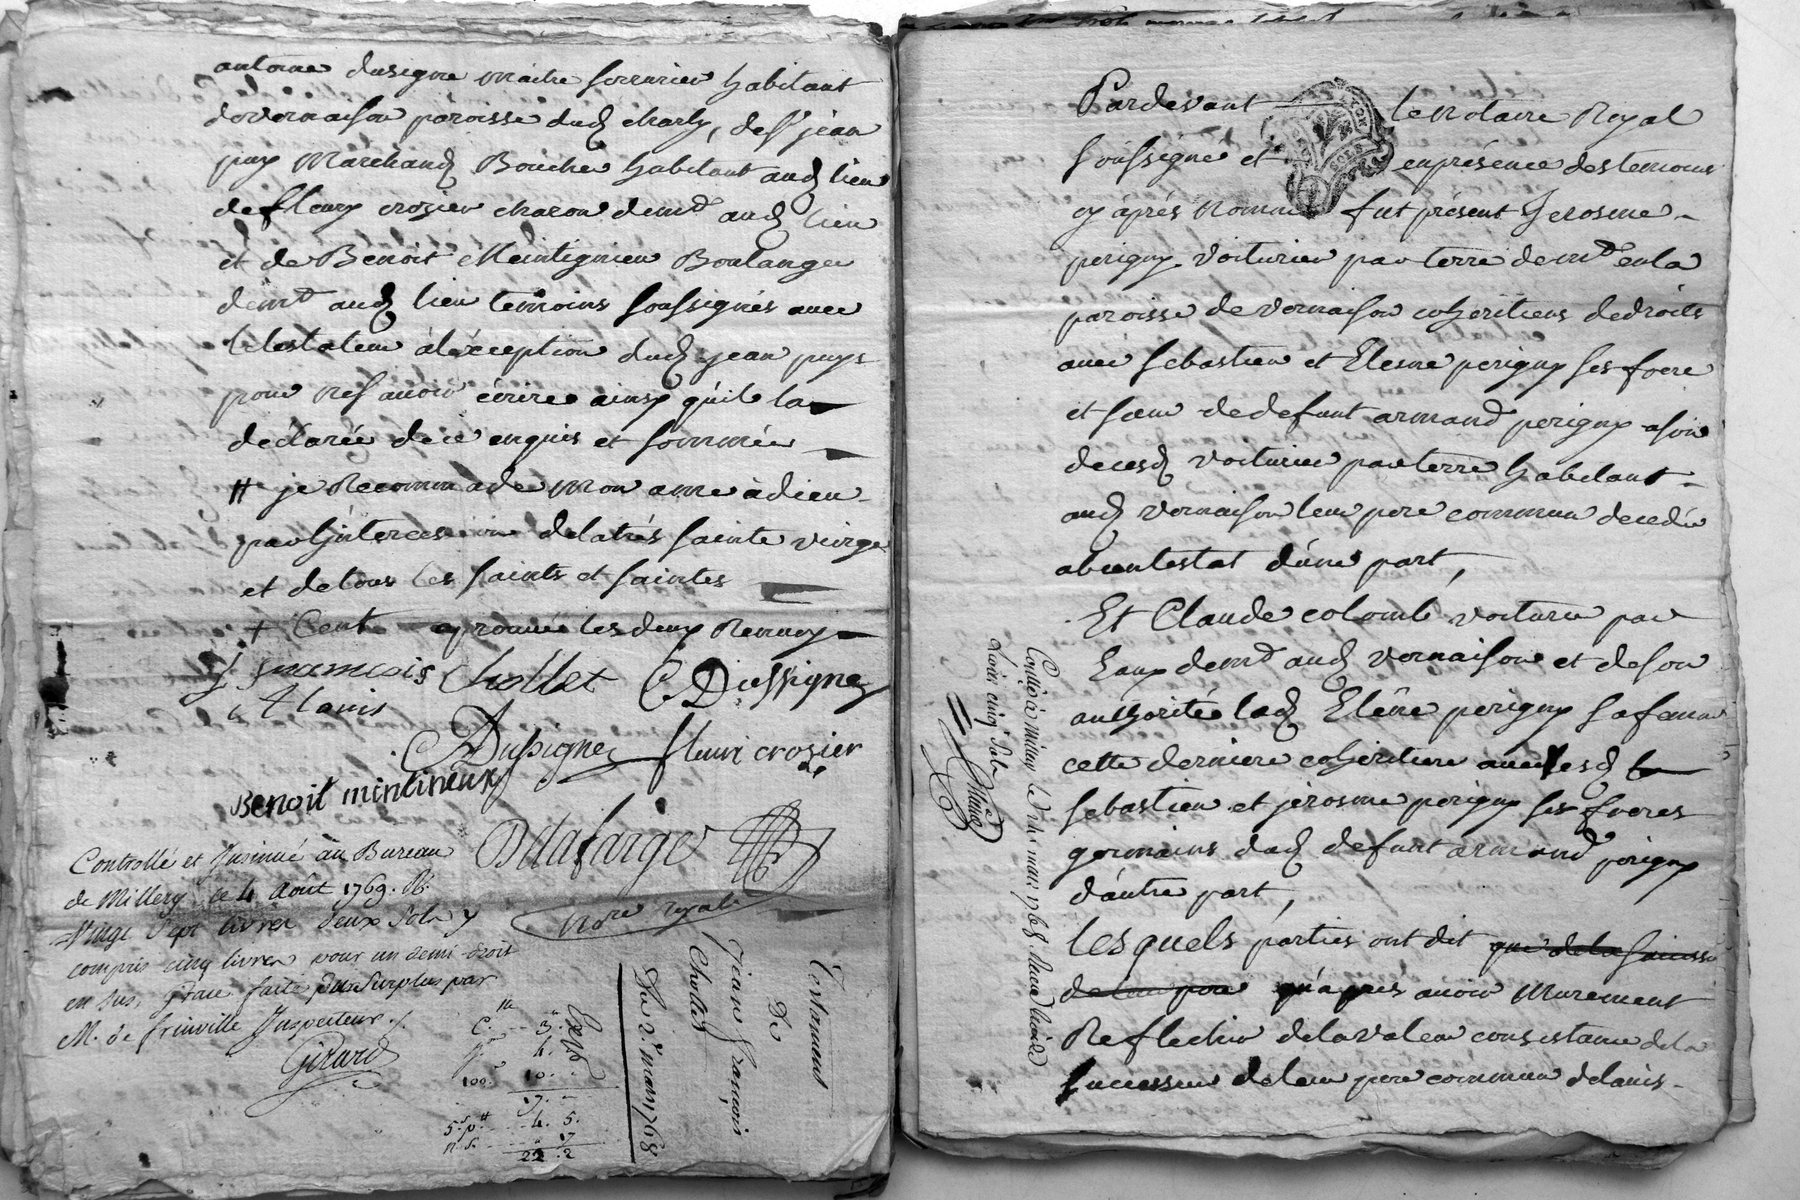 antoine dusigne maitre serrurier habitant
de vernaison paroisse dud charly, de sr jean
puy Marchand Boucher habitant aud lieu
de fleury crosier charon demt aud lieu
et de Benoit Meintignieu Boulanger
demt aud lieu temoins soussignés avec
le testateur à l'éxception dud jean puys
pour ne savoir écrire ainsy qu'il la
déclarée de ce enquis et sommée
# je Recommade mon ame à dieu
par l'intercession de la trés sainte vierge
et de tous les saints et saintes
+ Cent aprouvée les deux Renvoy
j francois Chollet C Dussigne
Alanis
C Dusigne fleuri crosier
Benoit mintineux
Delafarge
Nore royal
Controllé et Insinué au Bureau
de Millery le 4 Août 1769. R.
Vingt Sept livres deux sols y
compris cinq livres pour un demi-droit
en sus, grace faite du surplus par
M. de frinville Inspecteur.
Girard
C. 3.
4.
100. 10.
17.
5. s. p. 4. 5.
17
22. 2
Expd
Du 2e mars 1768
Testament
De
Jean François
Chollet
Pardevant le Notaire Royal
soussigné et en présence des temoins
cy après nommé fut présent Jerosme
perigny voiturier par terre demt en la
paroisse de vernaison cohéritiers de droits
avec sebastien et Elesne perigny ses frere
et sœur de defunt armand perigny a son
decesd voiturier par terre habitant
aud vernaison leur pere commun decedé
abintestat d'une part,
Et Claude colomb voiturier par
Eaux demt aud vernaison et de son
authorité lad Eléne perigny sa femme
cette derniere cohéritiere avec lesd
sebastien et jerosme perigny ses freres
germains dud defunt armand perigny
d'autre part,
Lesquels parties ont dit que de la
de leur pere qu'après avoir Murement
Reflechir de la valeur consistance de la
succession de leur pere commun de l'avis
Conllé à millery le
mars 1768. Reçu
cinq sols
Girard